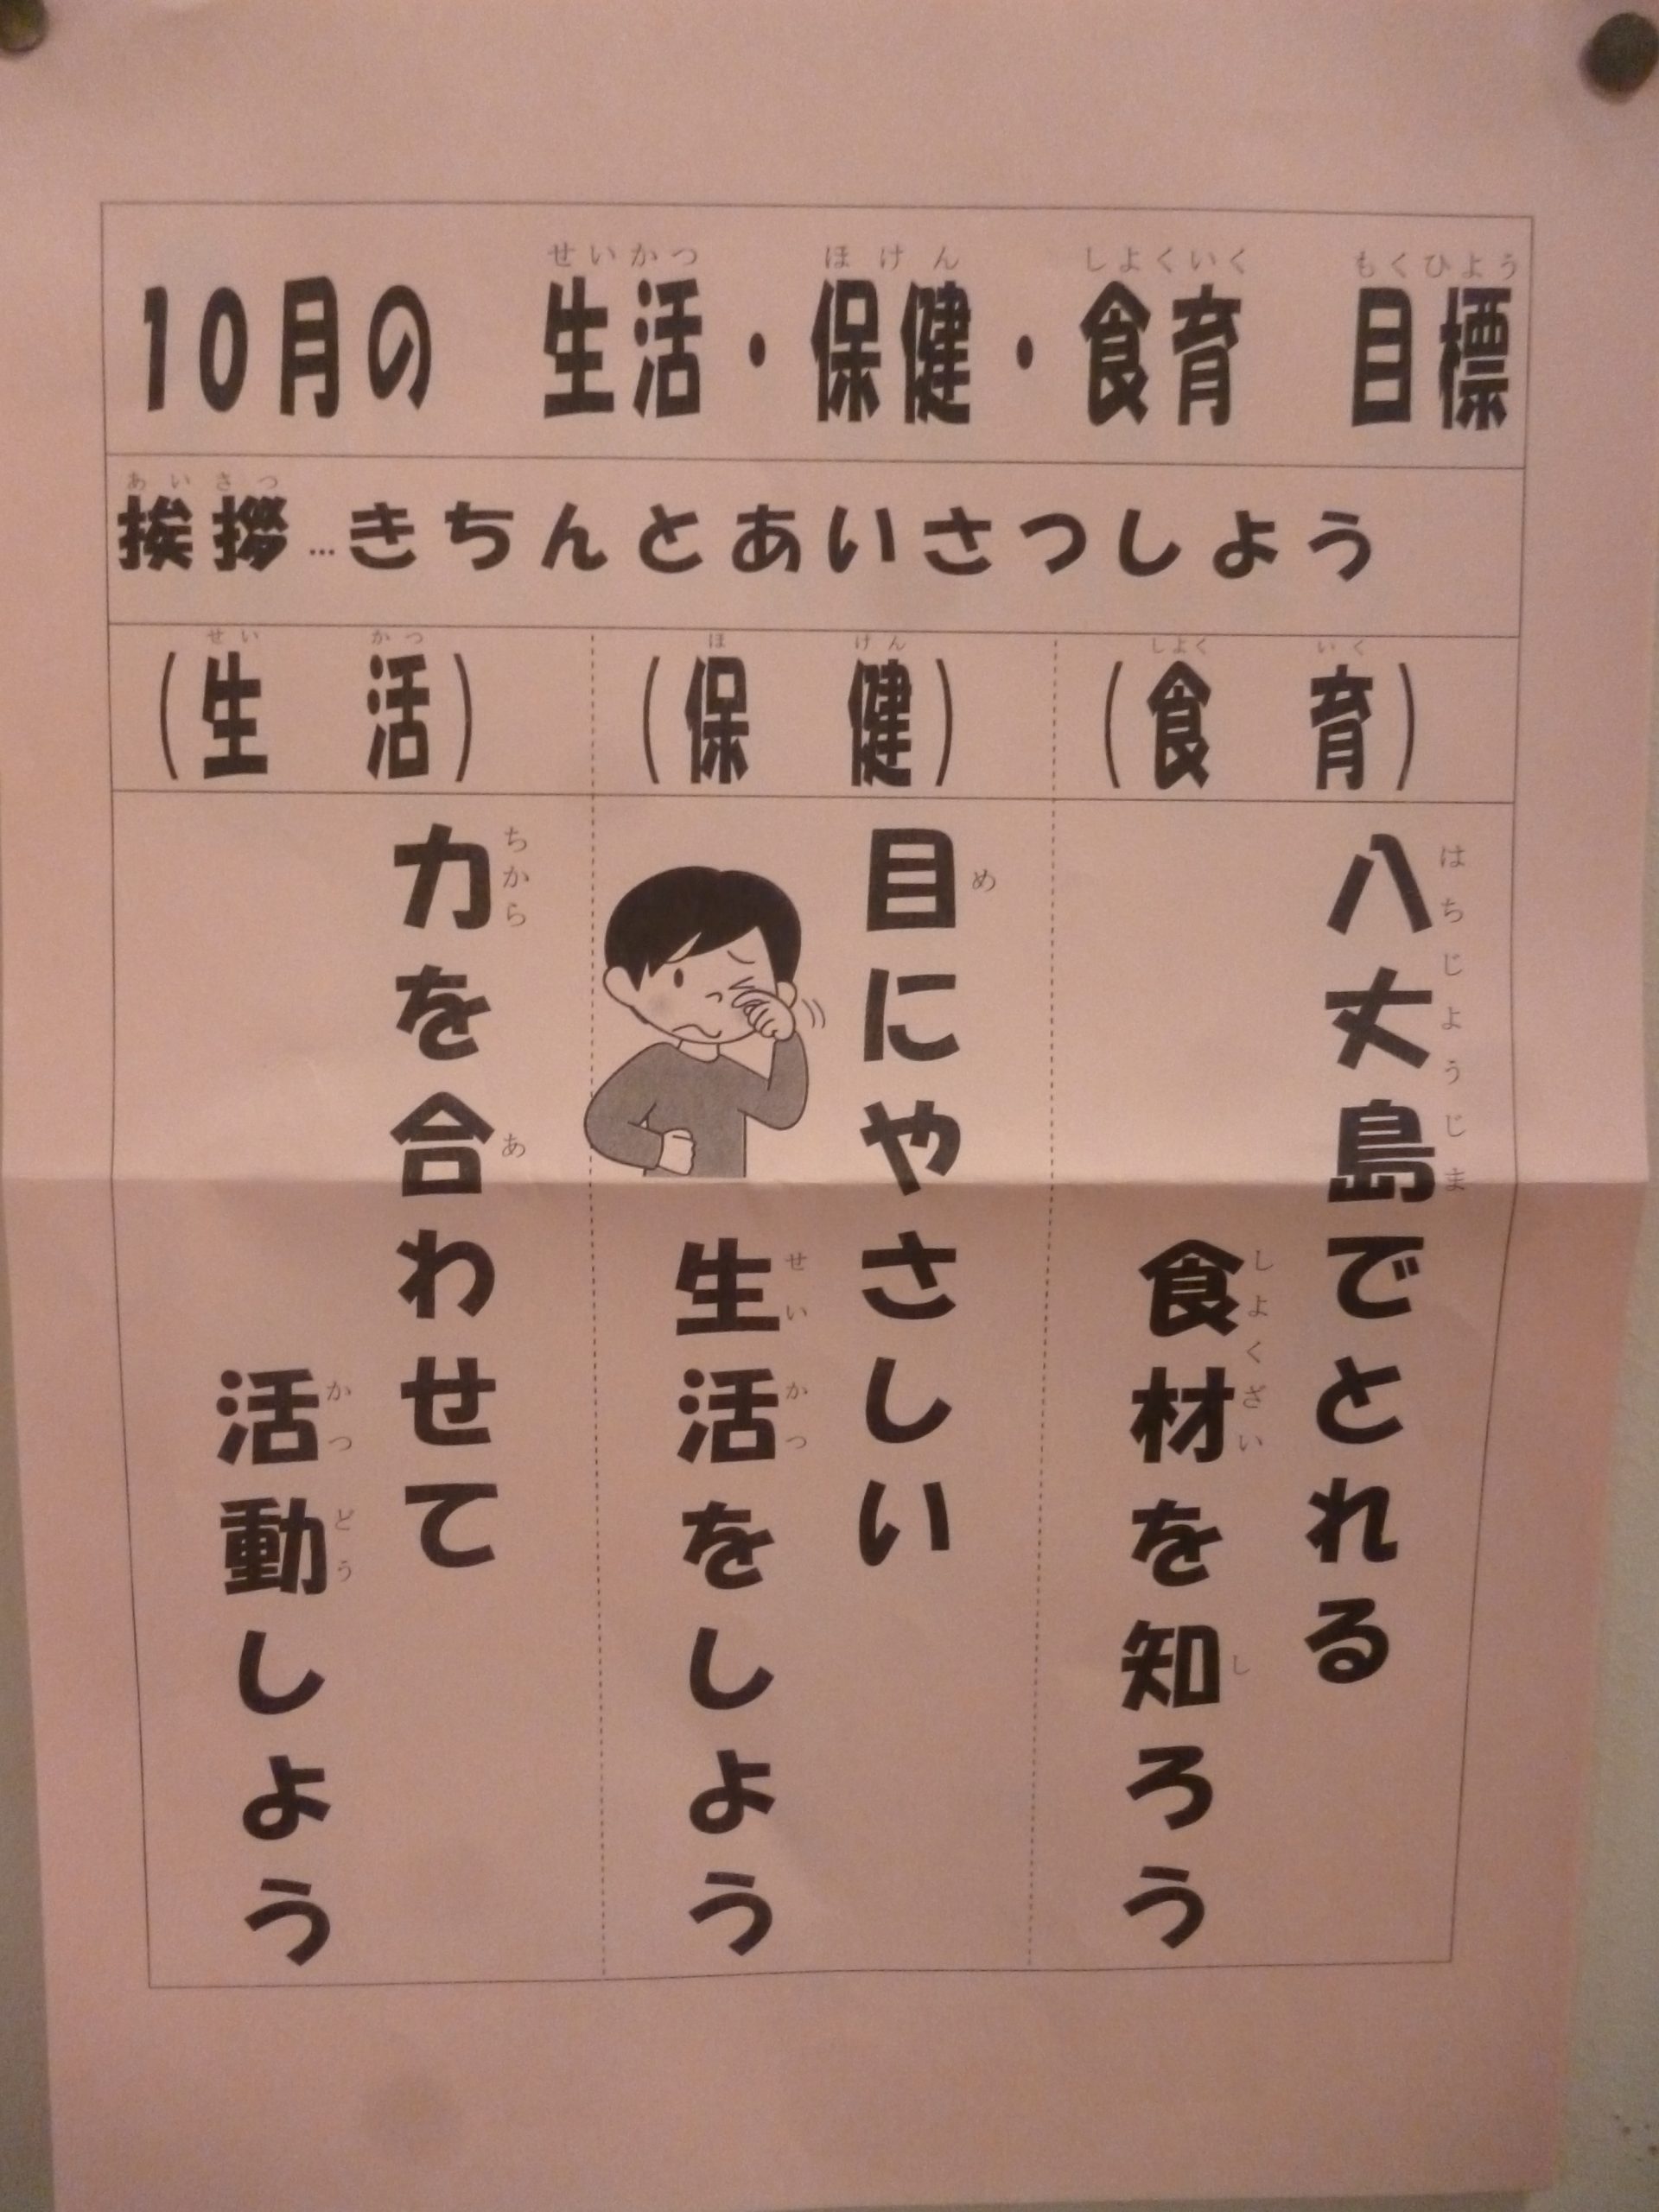 10月の 生活・保健・食育 目標
せいかつ ほけん しょくいく もくひょう
挨拶…きちんとあいさつしよう
あいさつ
(生 活)
せい かつ
(保 健)
ほ けん
(食 育)
しょく いく
八丈島でとれる
はちじょうじま
食材を知ろう
しょくざい し
目にやさしい
め
生活をしよう
せいかつ
力を合わせて
ちから あ
活動しよう
かつどう